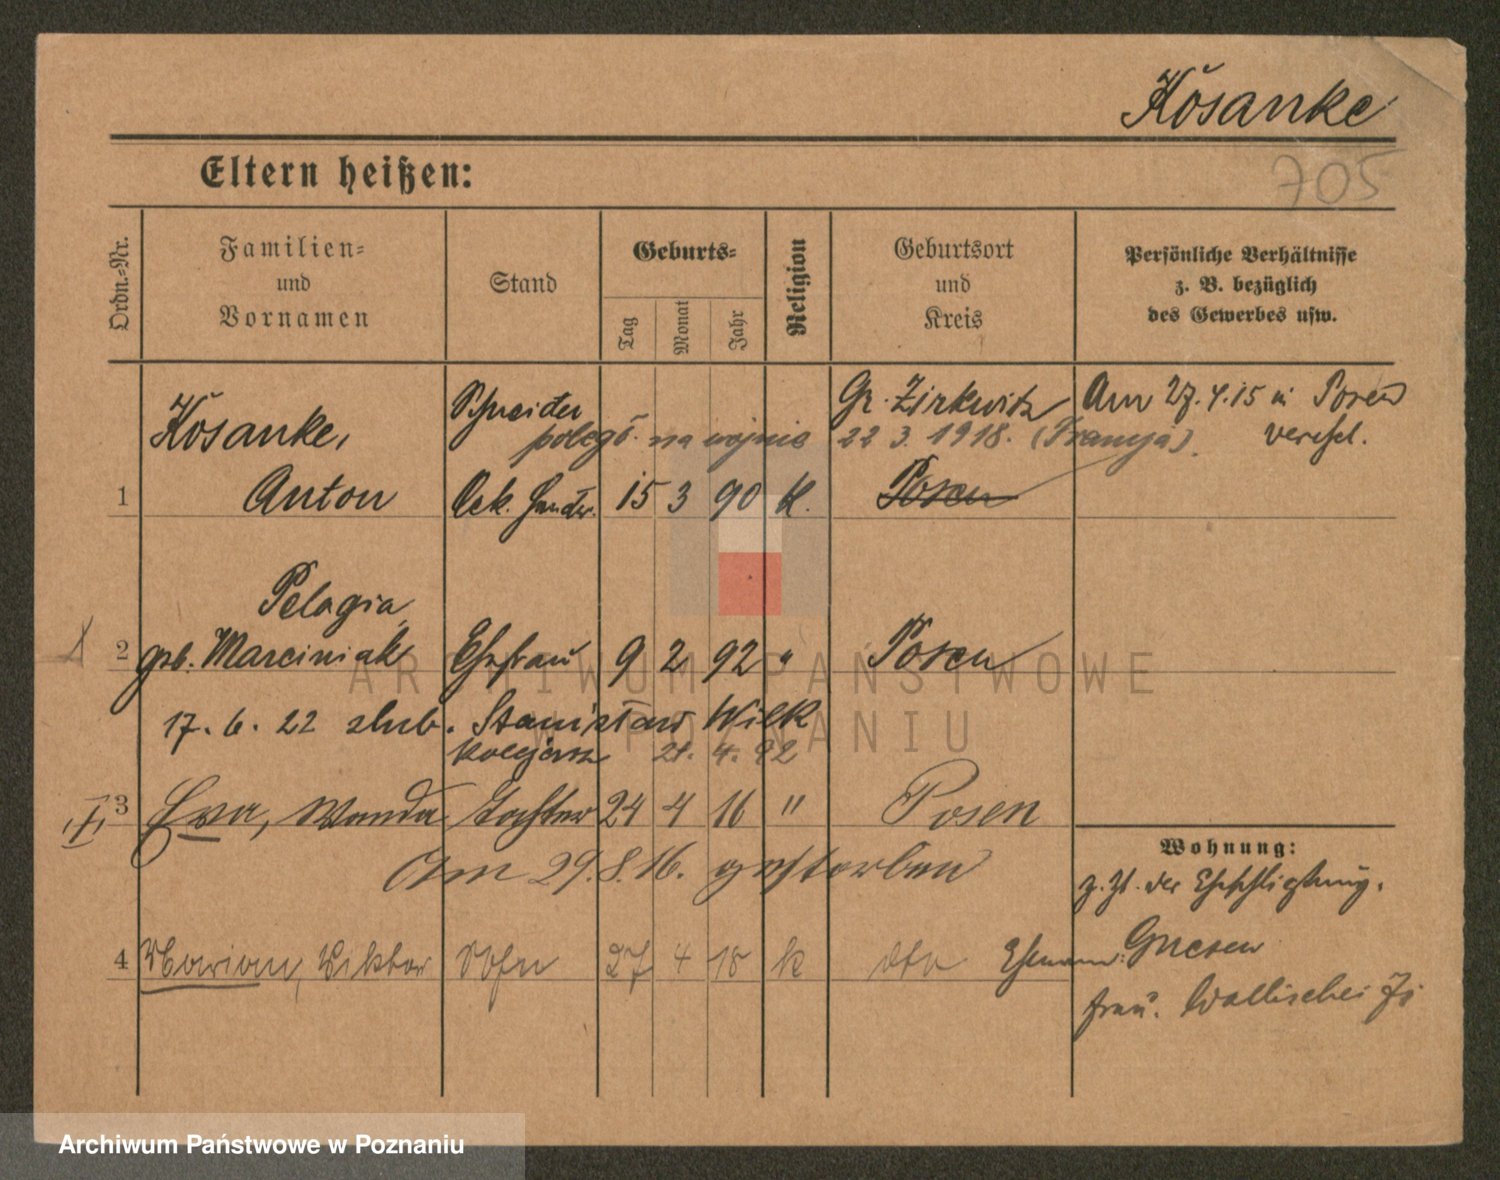 Kosanke
705
Eltern heißen:
Ordn.-Nr.
Familien-
und
Vornamen
Stand
Geburts-
Tag
Monat
Jahr
Religion
Geburtsort
und
Kreis
Persönliche Verhältnisse
z. B. bezüglich
des Gewerbes usw.
Kosanke,
Schneider
Gr. Zirkwitz
Am 27.4.15 in Posen
poległ na wojnie 22 3. 1918. (Francja).
verehel.
1
Anton
15 3 90 K.
Posen
Pelagia
2 geb. Marciniak Ehefrau 9 2 92 " Posen
17. 6. 22 slub. Stanisław Wilk
kolejarz 21. 4. 92
3 Eva, Wanda Tochter 24 4 16 " Posen
Am 29.8.16. gestorben
Wohnung:
z. Zt. der Eheschließung.
4 Marian, Viktor Sohn 27 4 18 k dto
Ehemann: Gnesen
Frau. Wallischei
ARCHIWUM PAŃSTWOWE
W POZNANIU
Archiwum Państwowe w Poznaniu